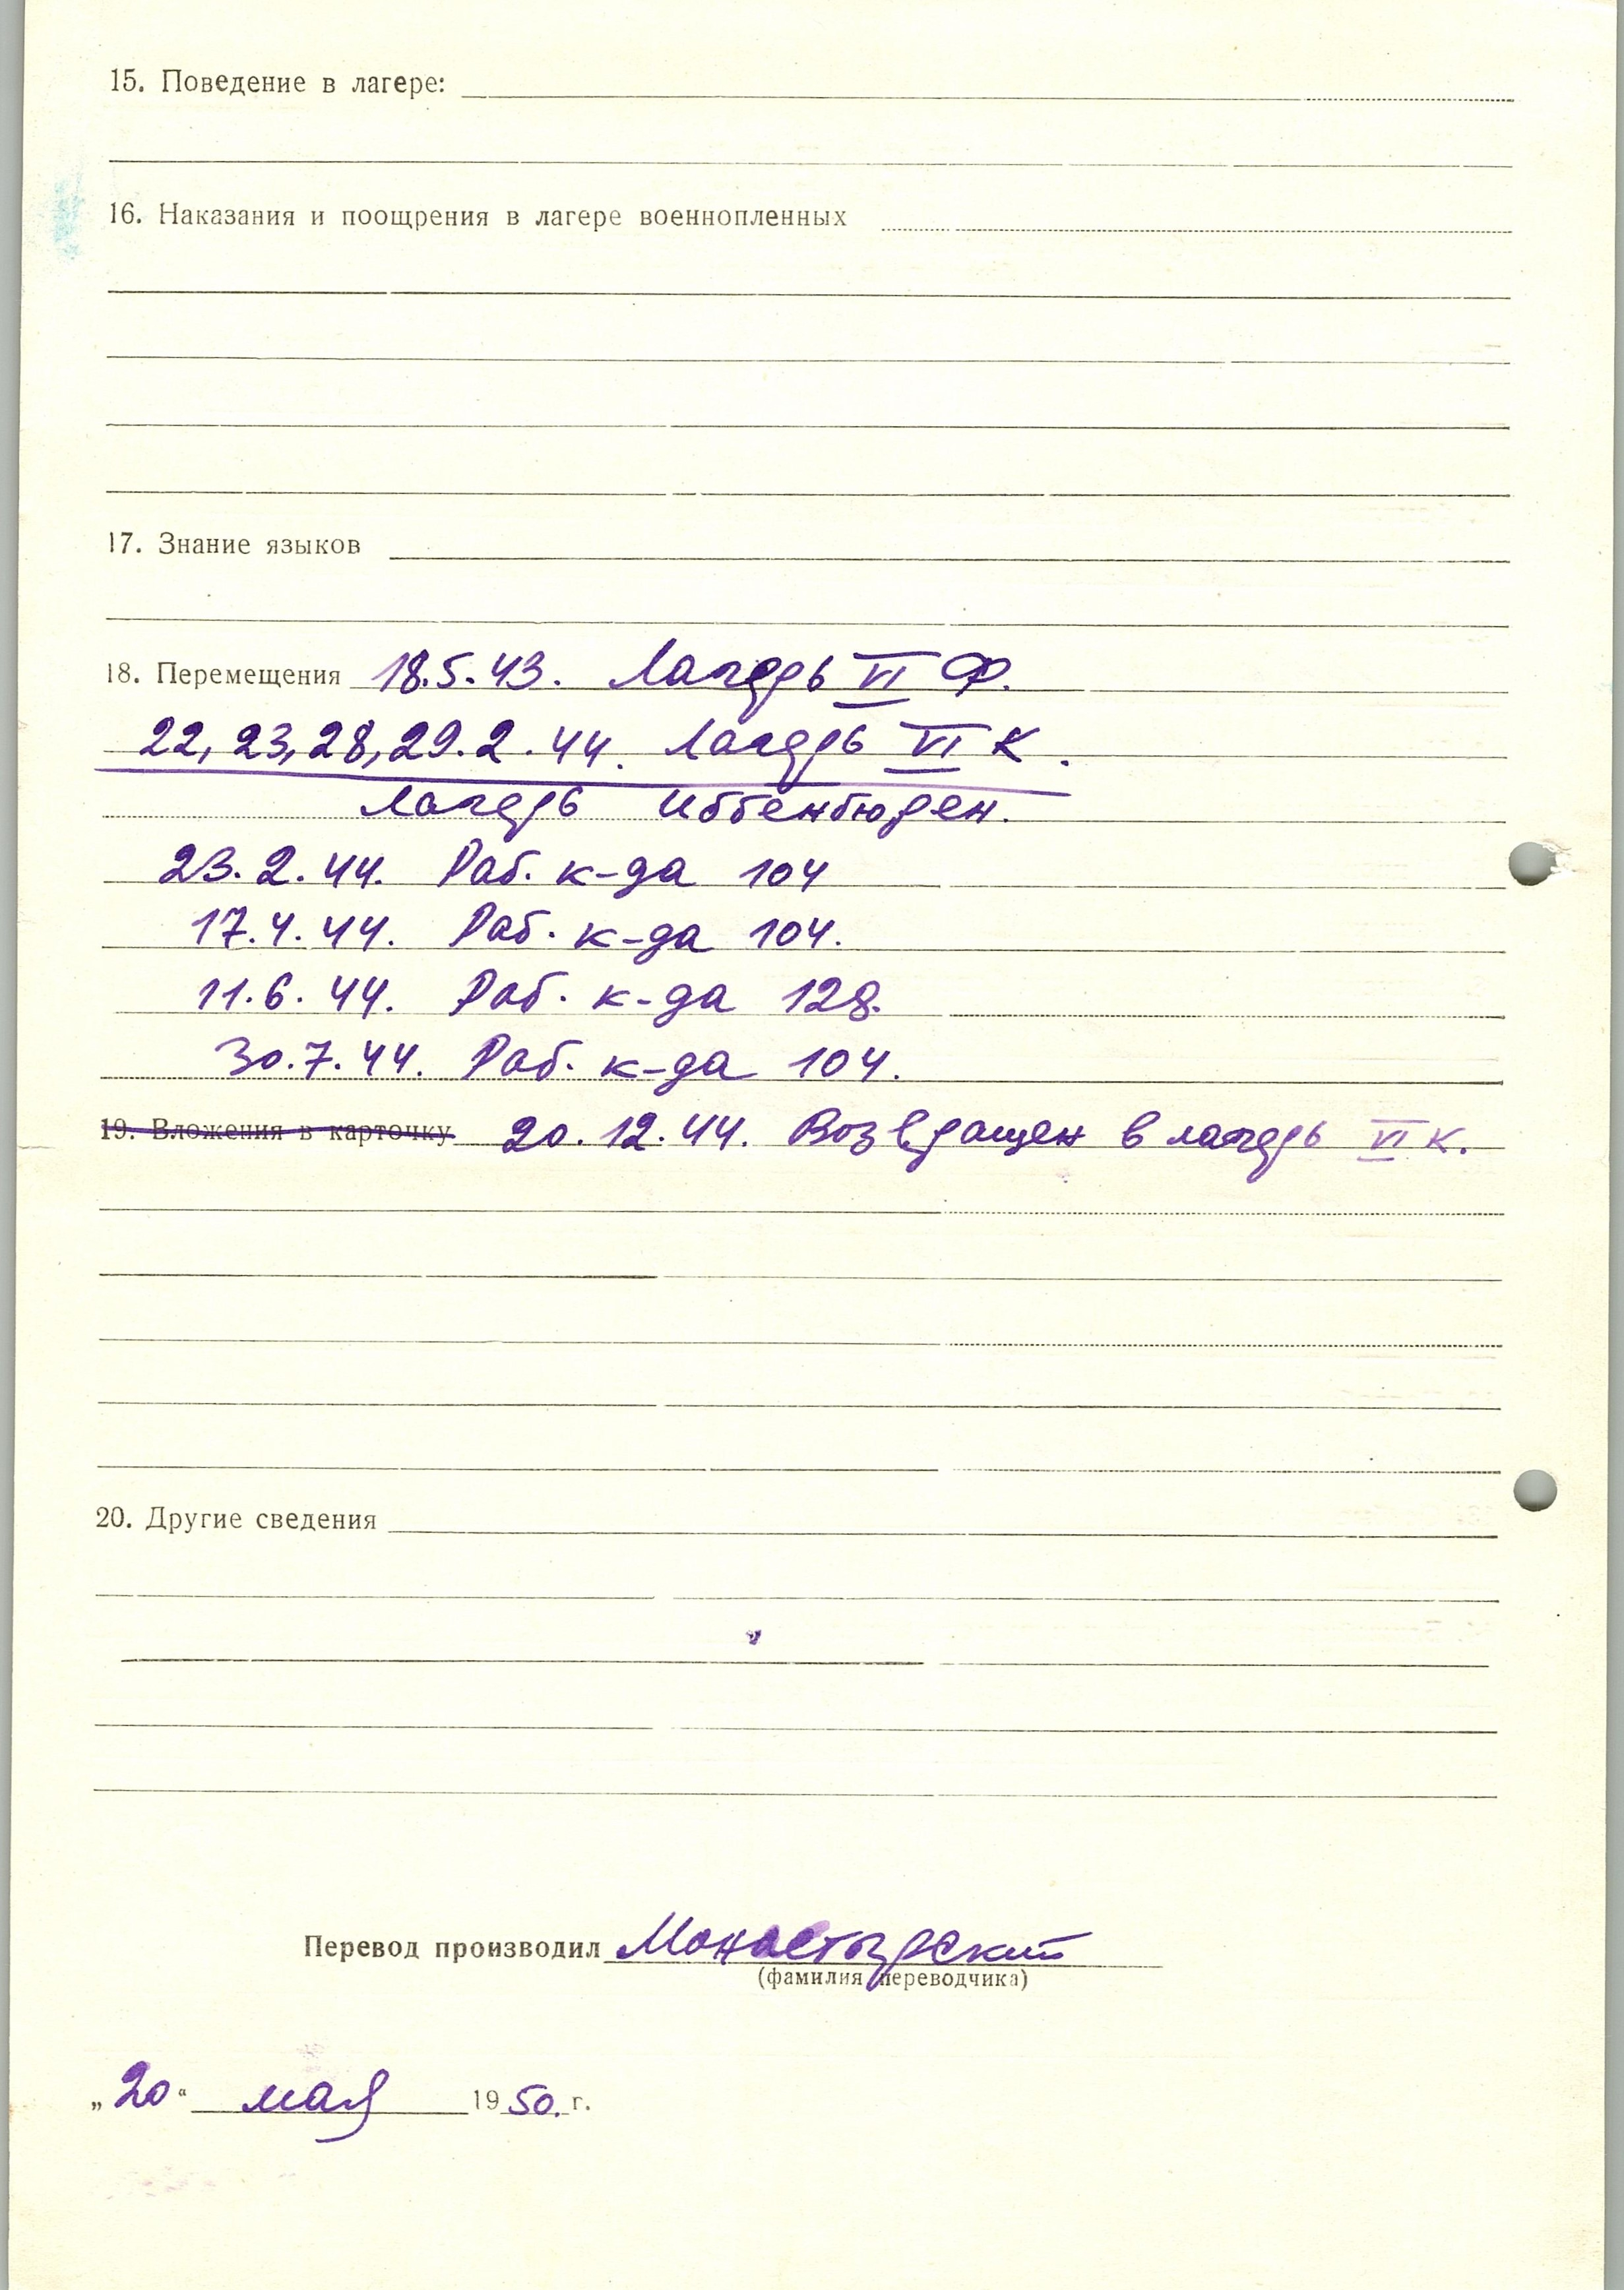 15. Поведение в лагере:
16. Наказания и поощрения в лагере военнопленных
17. Знание языков
18. Перемещения 18.5.43. Лагерь VI Ф.
22, 23, 28, 29.2.44. Лагерь VI К.
Лагерь Иббенбюрен.
23.2.44. Раб. к-да 104
17.4.44. Раб. к-да 104.
11.6.44. Раб. к-да 128.
30.7.44. Раб. к-да 104.
19. Вложения в карточку 20.12.44. Возвращен в лагерь VI К.
20. Другие сведения
Перевод производил Монастырский
(фамилия переводчика)
„20“ мая 1950. г.